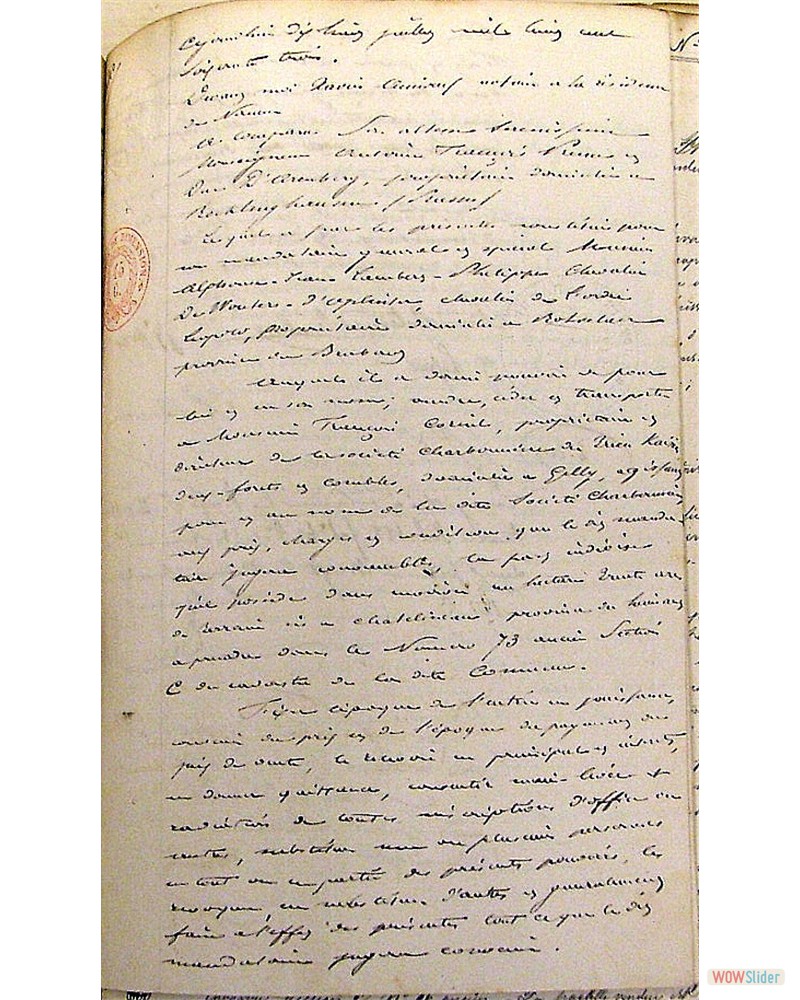 Cejourd'hui dix huit juillet mil huit cent
soixante trois.
Devant moi Xavier notaire a la résidence
de Namur
a comparu Son altesse Serenissime
Monseigneur Antoine François Prince et
Duc D'Arenberg, propriétaire domicilié a
Recklinghausen (Prusse)
Lequel a par les présentes constitué pour
son mandataire général et spécial Monsieur
Alphonse-Jean-Lambert-Philippe Chevalier
De Wouters-d'Oplinter, chevalier de l'ordre
Léopold, propriétaire domicilié a Rotselaer
province du Brabant
Auquel il a donné pouvoir de pour
lui et en son nom, vendre, céder et transporter
a Monsieur François Cornil, propriétaire et
directeur de la société Charbonnière du Trieu Kaisin
deux-forêts et combles, domicilié a Gilly, agissant
pour et au nom de la dite Société Charbonnière
aux prix, charges et conditions que le dit manda-
taire jugera convenables, la part indivise
qu'il possède dans un hectare trente ares
de terrain sis a chatelineau province du hainaut
a prendre dans le Numero 73 ancien Section
C du cadastre de la dite Commune.
Fixer l'époque de l'entrée en jouissance,
convenir du prix et de l'époque du payement du
prix de vente, le recevoir en principal et intérêts,
en donner quittance, consentir main-levée et
radiation de toutes inscriptions d'office ou
autres, substituer une ou plusieurs personnes
en tout ou en partie des présents pouvoirs, les
révoquer en substituer d'autres et généralement
faire a l'effet des présentes tout ce que le dit
mandataire jugera convenir.
WOWSlider